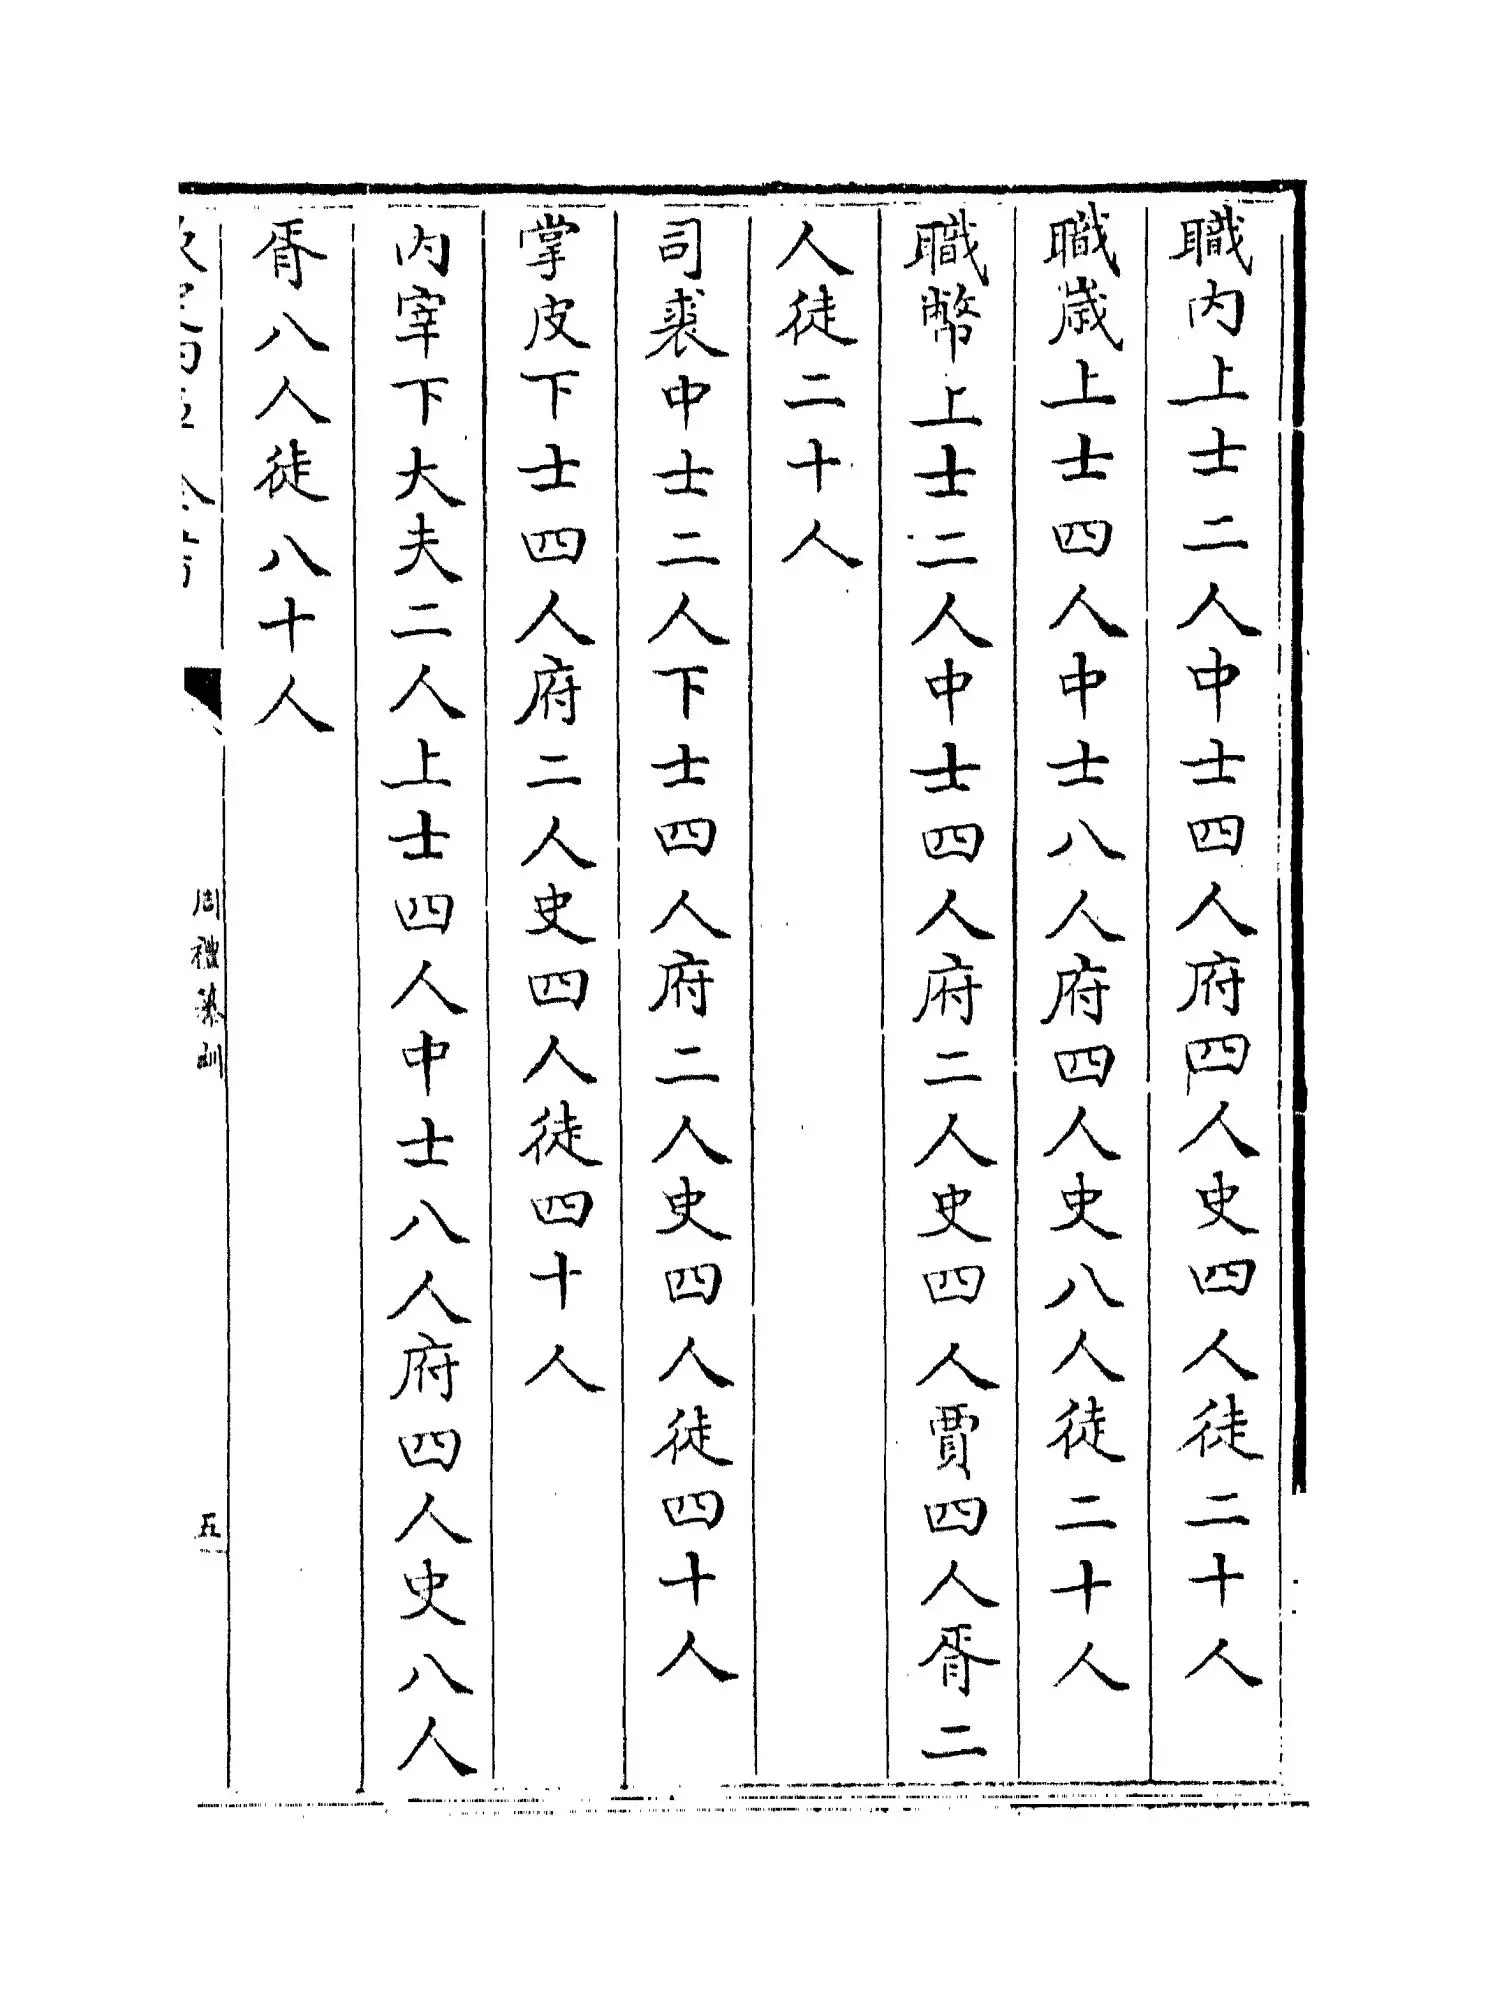 職内上士二人中士四人府四人史四人徒二十人
職歲上士四人中士八人府四人史八人徒二十人
職幣上士二人中士四人府二人史四人賈四人胥二
人徒二十人
司裘中士二人下士四人府二人史四人徒四十人
掌皮下士四人府二人史四人徒四十人
内宰下大夫二人上士四人中士八人府四人史八人
胥八人徒八十人
周禮纂訓
五